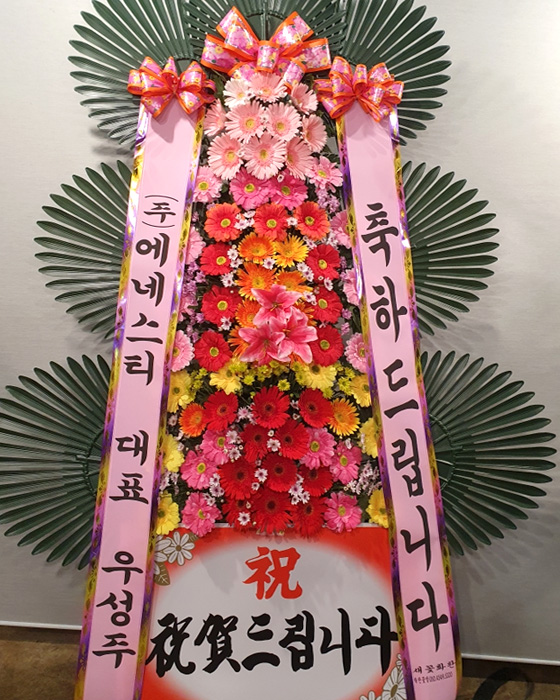 (주)에네스티 대표 우성주
축하드립니다
祝
祝賀드립니다
새꽃화환